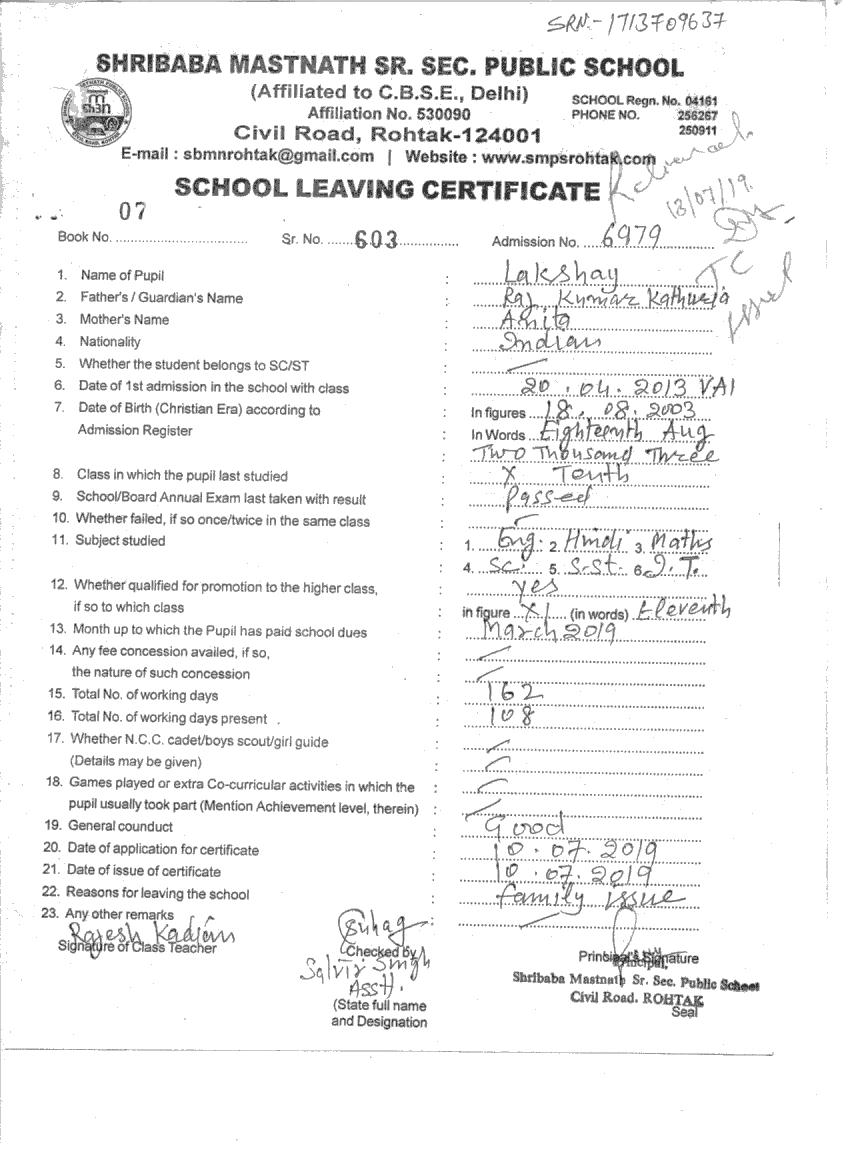 SRN:- 1713709637
SHRIBABA MASTNATH SR. SEC. PUBLIC SCHOOL
(Affiliated to C.B.S.E., Delhi)
Affiliation No. 530090
SCHOOL Regn. No. 04161
PHONE NO. 256267
250911
Civil Road, Rohtak-124001
E-mail : sbmnrohtak@gmail.com | Website : www.smpsrohtak.com
SCHOOL LEAVING CERTIFICATE
13/07/19.
TC
issued
Book No. 07 Sr. No. 603 Admission No. 6979
1. Name of Pupil : Lakshay
2. Father's / Guardian's Name : Raj Kumar Kathuria
3. Mother's Name : Anita
4. Nationality : Indian
5. Whether the student belongs to SC/ST :
6. Date of 1st admission in the school with class : 20.04.2013 VAI
7. Date of Birth (Christian Era) according to : In figures 18.08.2003
Admission Register In Words Eighteenth Aug
Two Thousand Three
8. Class in which the pupil last studied : X Tenth
9. School/Board Annual Exam last taken with result : Passed
10. Whether failed, if so once/twice in the same class :
11. Subject studied : 1. Eng. 2. Hindi 3. Maths
4. Sc. 5. S.St. 6. I.T.
12. Whether qualified for promotion to the higher class, : yes
if so to which class in figure XI (in words) Eleventh
13. Month up to which the Pupil has paid school dues : March 2019
14. Any fee concession availed, if so, :
the nature of such concession
15. Total No. of working days : 162
16. Total No. of working days present : 108
17. Whether N.C.C. cadet/boys scout/girl guide :
(Details may be given)
18. Games played or extra Co-curricular activities in which the :
pupil usually took part (Mention Achievement level, therein) :
19. General counduct : Good
20. Date of application for certificate : 10.07.2019
21. Date of issue of certificate : 10.07.2019
22. Reasons for leaving the school : family issue
23. Any other remarks :
Rajesh
Signature of Class Teacher
Suhag
Checked by
Singh
Asstt.
(State full name
and Designation
Principal's Signature
Principal,
Shribaba Mastnath Sr. Sec. Public School
Civil Road. ROHTAK
Seal